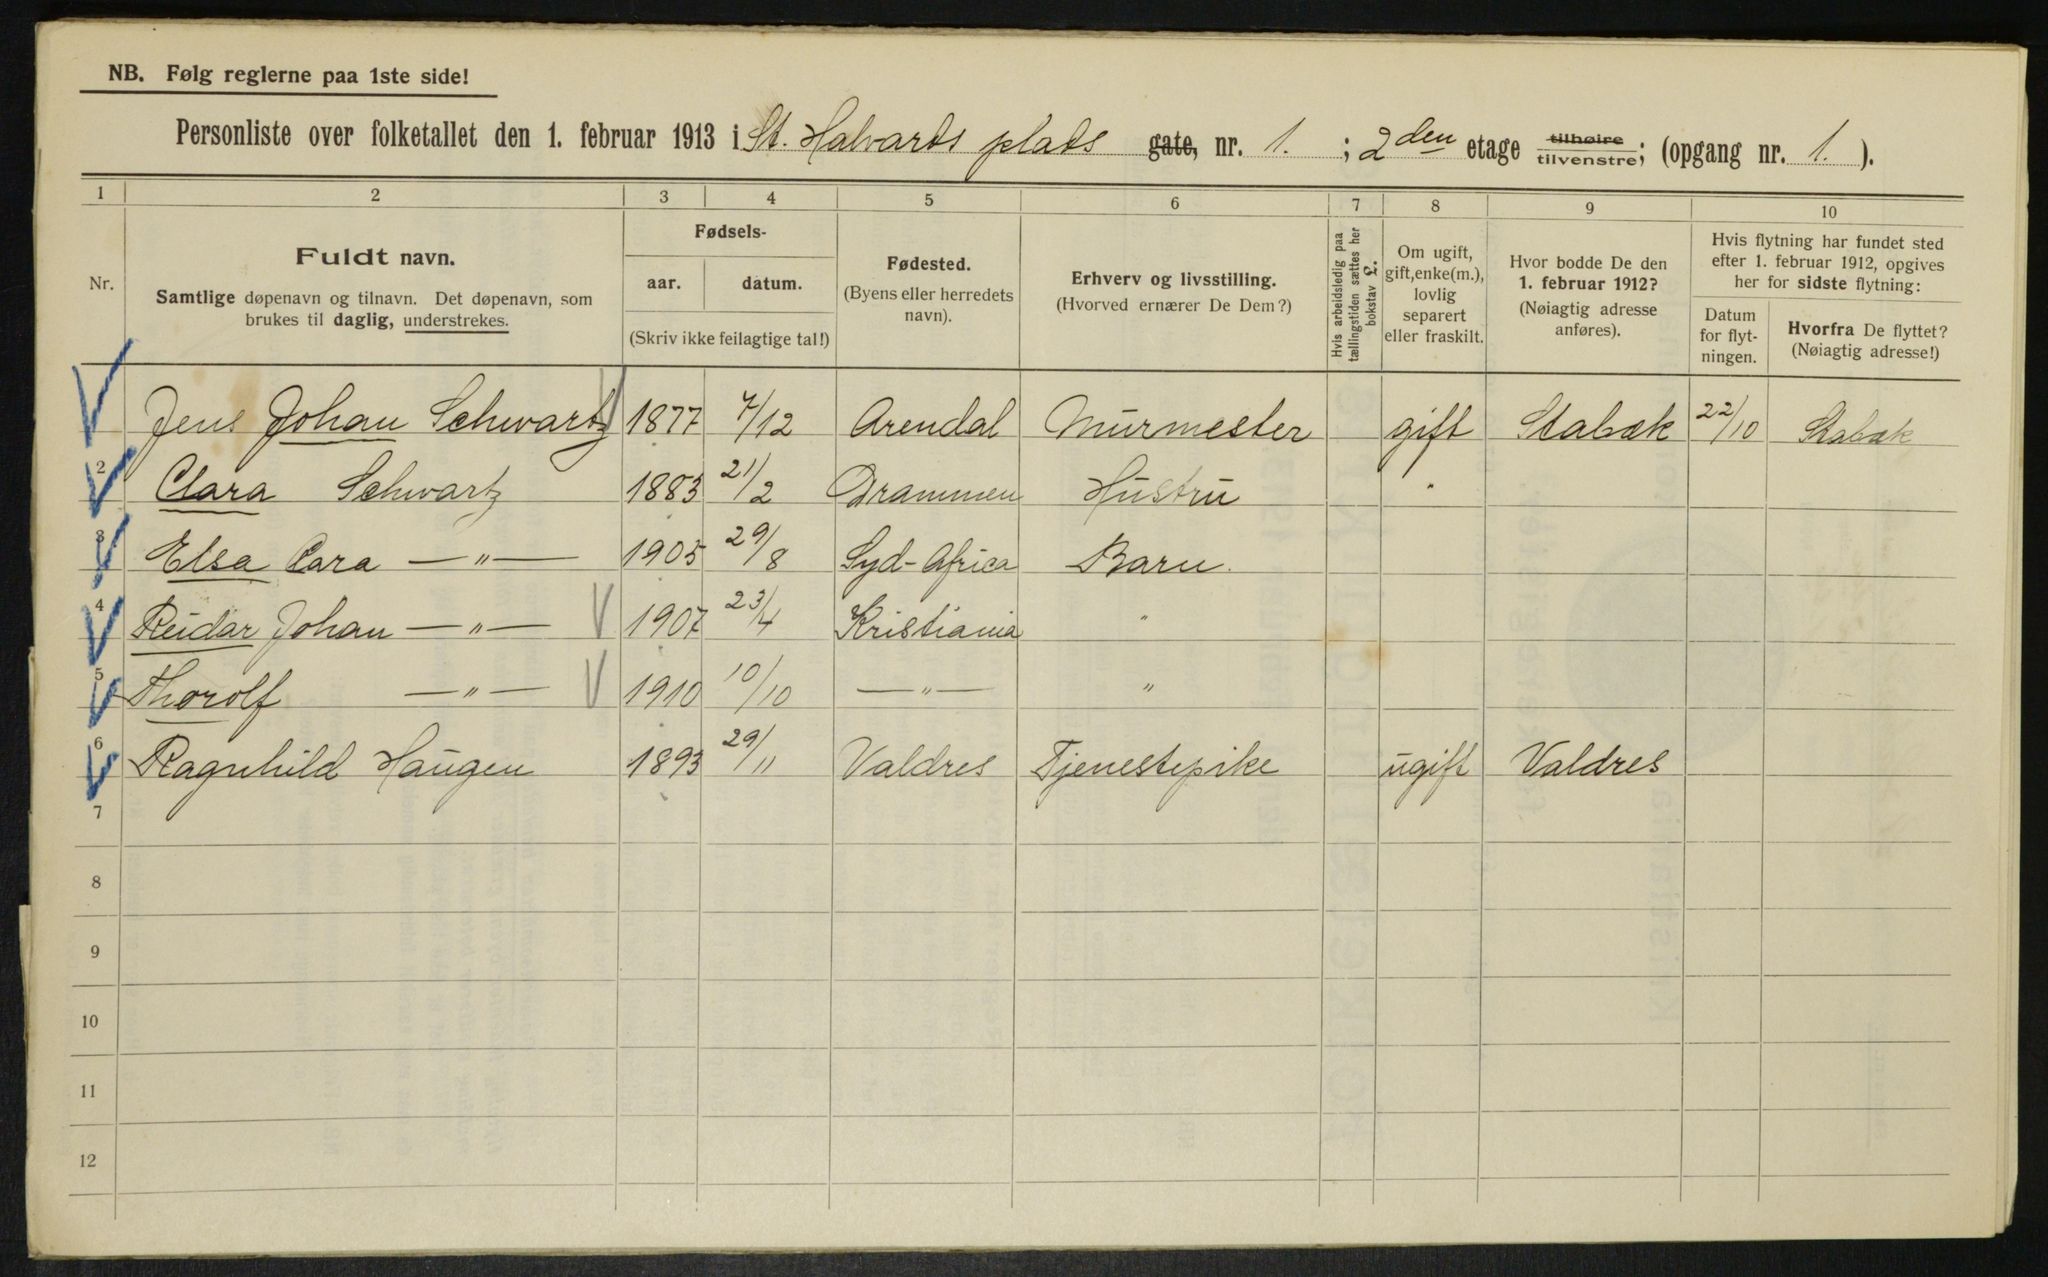 NB. Følg reglerne paa 1ste side!
Personliste over folketallet den 1. februar 1913 i St. Halvards plads gate, nr. 1. ; 2den etage tilhøire tilvenstre; (opgang nr. 1. ).
1 2 3 4 5 6 7 8 9 10
Nr.
Fuldt navn.
Samtlige døpenavn og tilnavn. Det døpenavn, som
brukes til daglig, understrekes.
Fødsels-
aar. datum.
(Skriv ikke feilagtige tal!)
Fødested.
(Byens eller herredets
navn).
Erhverv og livsstilling.
(Hvorved ernærer De Dem?)
Hvis arbeidsledig paa
tællingstiden sættes her
bokstav L.
Om ugift,
gift, enke(m.),
lovlig
separert
eller fraskilt.
Hvor bodde De den
1. februar 1912?
(Nøiagtig adresse
anføres).
Hvis flytning har fundet sted
efter 1. februar 1912, opgives
her for sidste flytning:
Datum
for flyt-
ningen.
Hvorfra De flyttet?
(Nøiagtig adresse!)
Jens Johan Schwartz 1877 7/12 Arendal Murmester gift Stabæk 22/10 Stabæk
2 Clara Schwartz 1883 21/2 Drammen Hustru "
3 Elsa Cara —"— 1905 29/8 Syd-Africa Barn.
4 Reidar Johan —"— 1907 23/4 Kristiania "
5 Thorolf —"— 1910 10/10 —"— "
6 Ragnhild Haugen 1893 29/11 Valdres Tjenestepike ugift Valdres
7
8
9
10
11
12